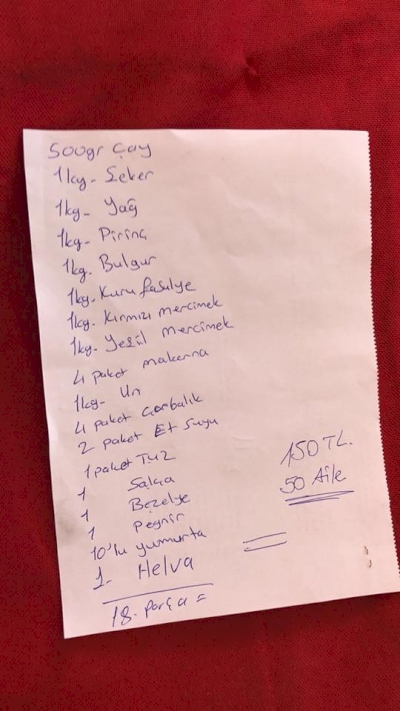 500gr Çay
1kg- Şeker
1kg- Yağ
1kg- Pirinç
1kg. Bulgur
1kg. Kuru fasulye
1kg. Kırmızı mercimek
1kg- Yeşil mercimek
4 paket makarna
1kg- Un
4 paket Çorbalık
2 paket Et Suyu
1 paket Tuz
1 Salça
1 Bezelye
1 Peynir
10'lu yumurta
1- Helva
18. Parça =
150 TL.
50 Aile